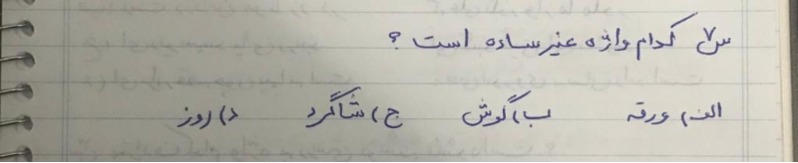 س۷ کدام واژه غیرساده است؟
الف) ورقه ب) گوش ج) شاگرد د) روز